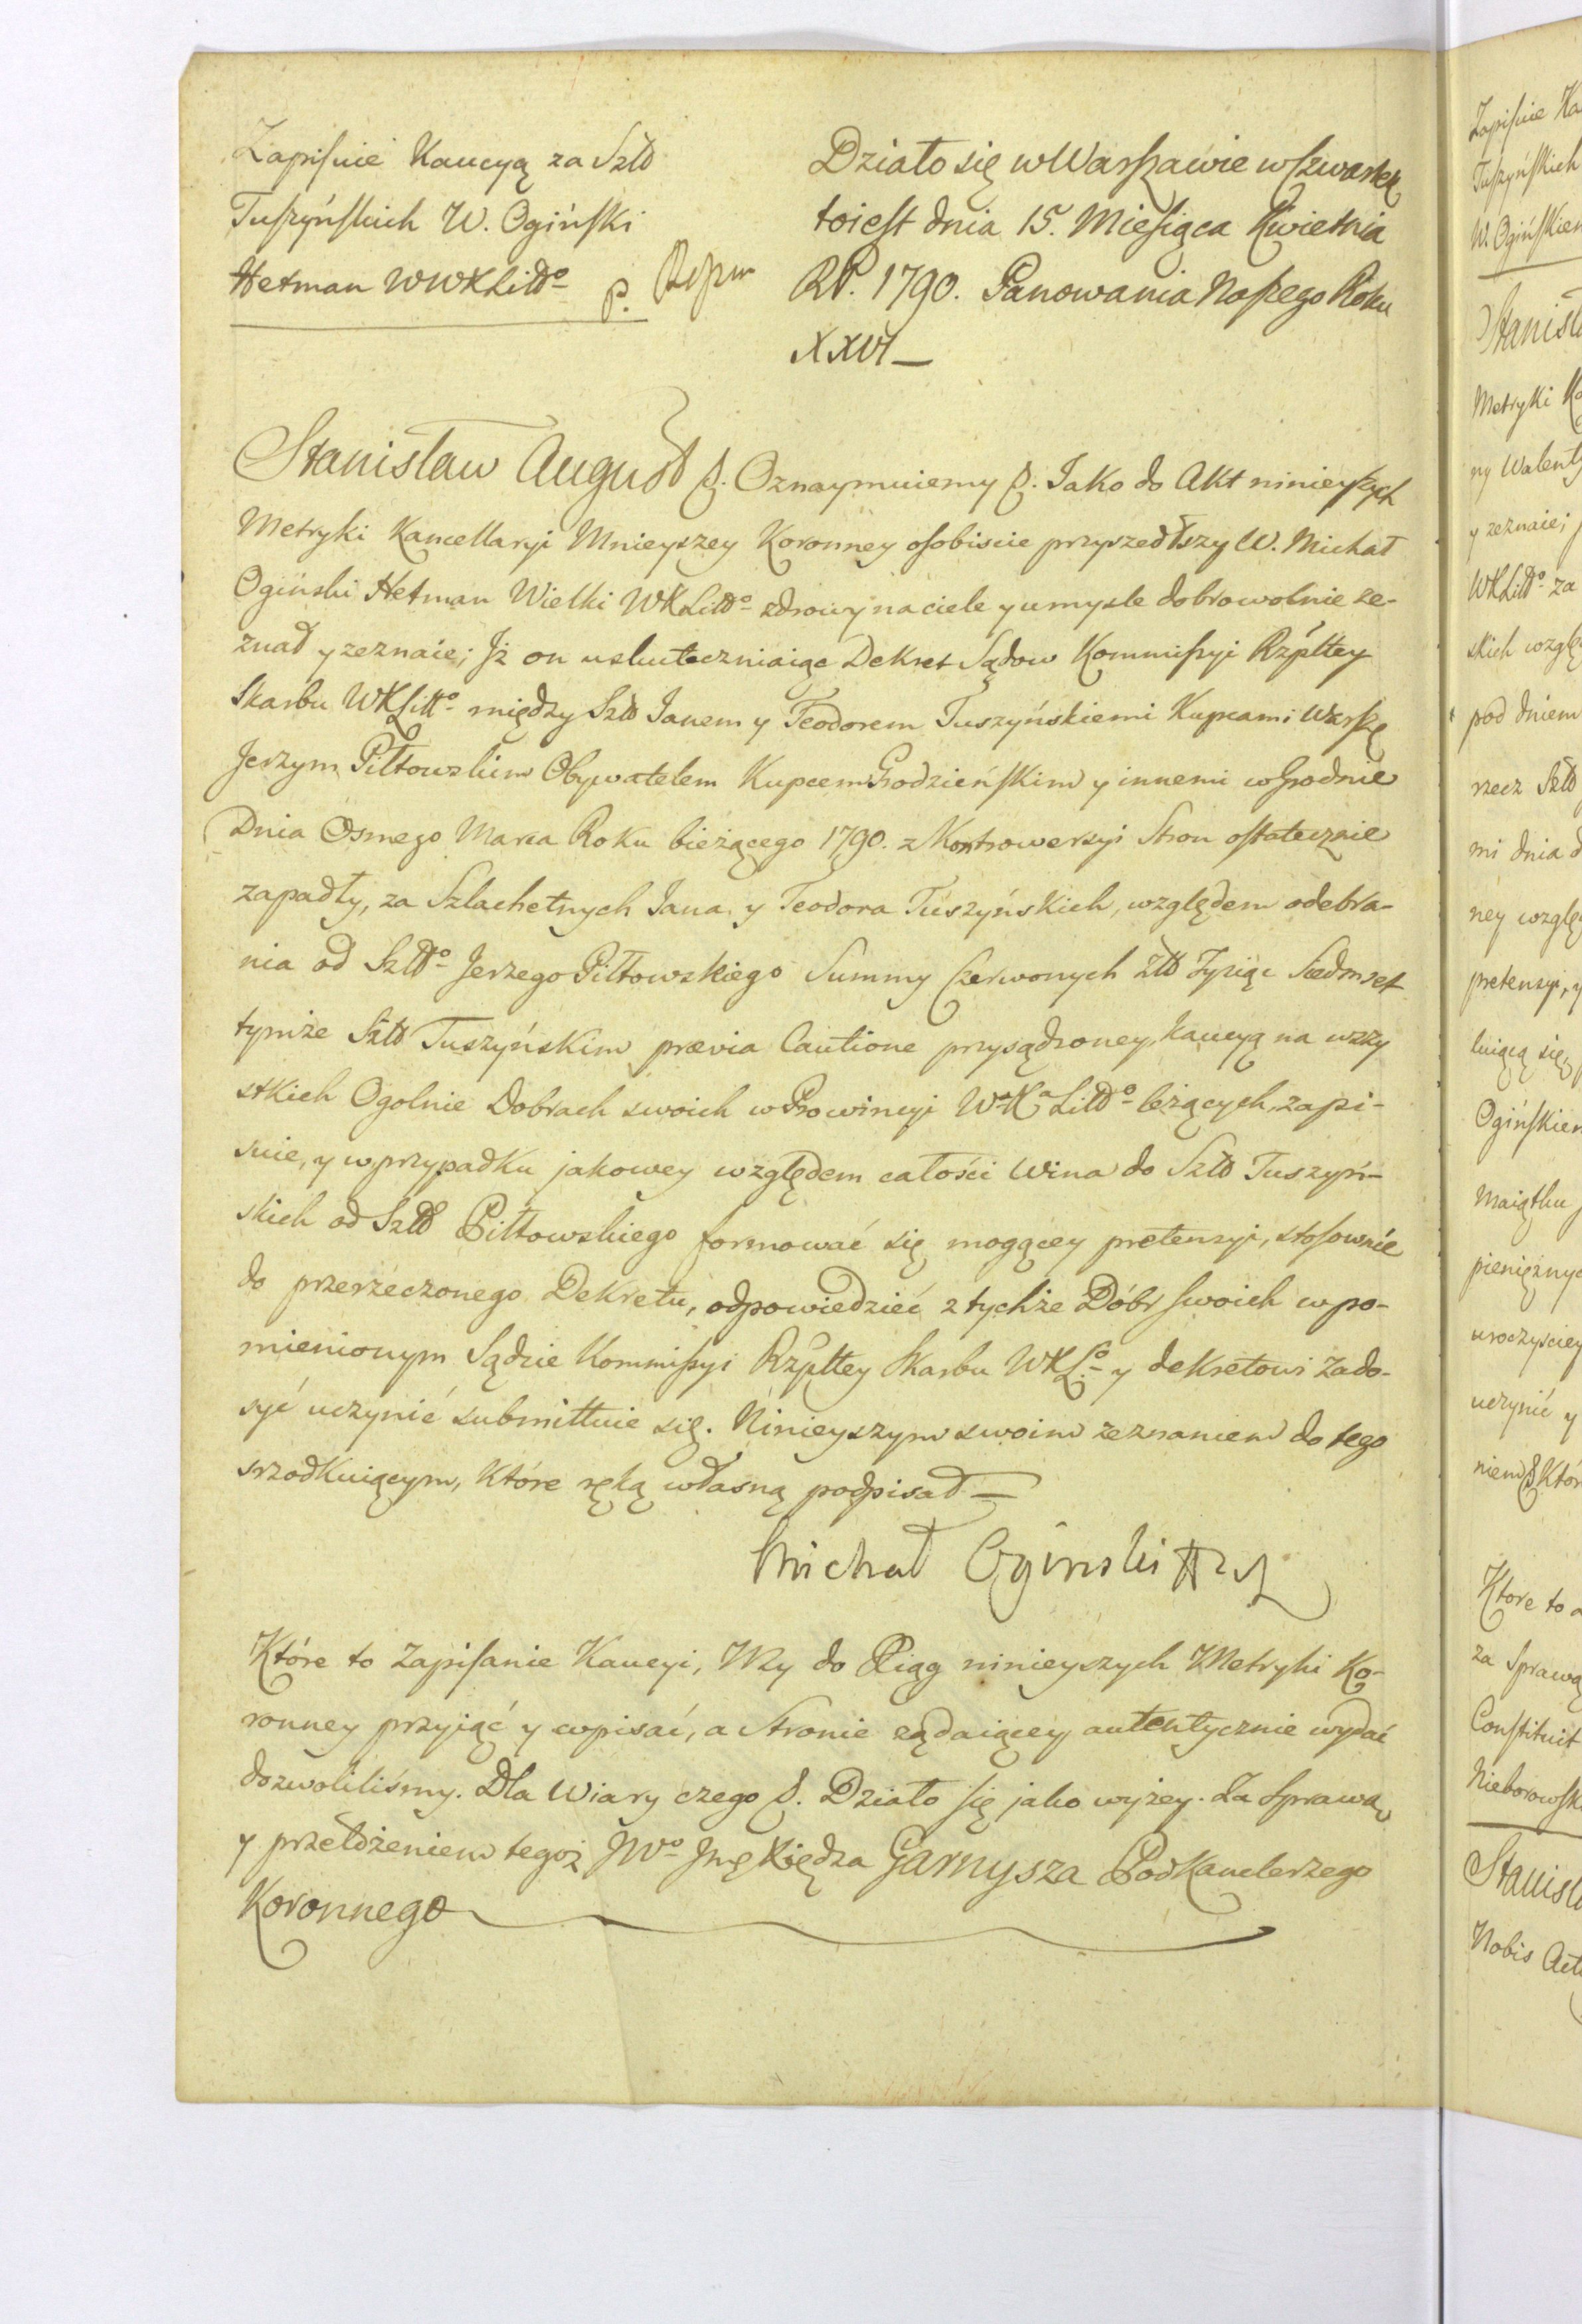 Zapisuie Kaucyą za Szld
Tuszyńskich W. Ogiński
Hetman WWXLitto
Działo się w Warszawie w Czwartek
toiest dnia 15. Miesiąca Kwietnia
RP. 1790. Panowania Naszego Roku
XXVI
Stanisław August &. Oznaymuiemy &. Jako do Akt ninieyszych
Metryki Kancellaryi Mnieyszey Koronney osobiscie przyszedłszy W. Michał
Oginski Hetman Wielki WXLitto zdrowy na ciele y umysle dobrowolnie ze-
znał y zeznaie; Jż on uskuteczniaiąc Dekret Sądow Kommissyi Rzpltey
Skarbu WXLitto między Szld Janem y Teodorem Tuszyńskiemi Kupcami Warsz
Jerzym Piłtowskim Obywatelem Kupcem Grodzieńskim y innemi w Grodnie
Dnia Osmego Marca Roku bieżącego 1790. z Kontrowersyi Stron ostatecznie
zapadły, za Szlachetnych Jana y Teodora Tuszyńskich, względem odebra-
nia od Szldo Jerzego Piłtowskiego Summy Czerwonych Złd Tysiąc Siedmset
tymże Szld Tuszyńskim prævia Cautione przysądzoney, kaucyą na wszy
stkich Ogolnie Dobrach swoich w Prowincyi WoXa Litto leżących, zapi-
suie, y w przypadku jakowey względem całości Wina do Szld Tuszyń-
skich od Szld Piłtowskiego formować się mogącey pretensyi, stosownie
do przerzeczonego Dekretu, odpowiedzieć z tychże Dóbr swoich w po-
mienionym Sądzie Kommissyi Rzpltey Skarbu WXLo y dekretowi zado-
syć uczynić submittuie się. Ninieyszym swoim zeznaniem do tego
srzodkuiącym, które ręką własną podpisał
Michał Oginski
Które to Zapisanie Kaucyi, My do Xiąg ninieyszych Metryki Ko-
ronney przyiąć y wpisać, a Stronie ządaiącey autentycznie wydać
dozwoliliśmy. Dla Wiary czego &. Działo się jako wyżey. Za Sprawą
y przełożeniem tegoż JWo Jmę Xiędza Garnysza Podkanclerzego
Koronnego